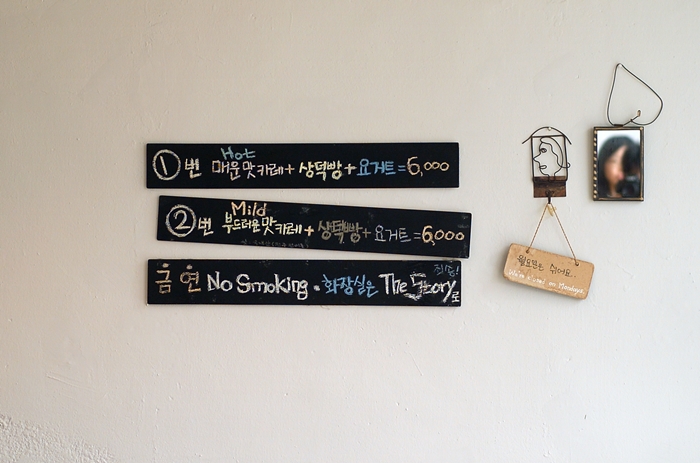 Hot
① 번 매운맛카레+상덕빵+요거트=6,000
Mild
② 번 부드러운맛카레+상덕빵+요거트=6,000
금연 No Smoking. 화장실은 The Story로
월요일은 쉬어요.
on Mondays.